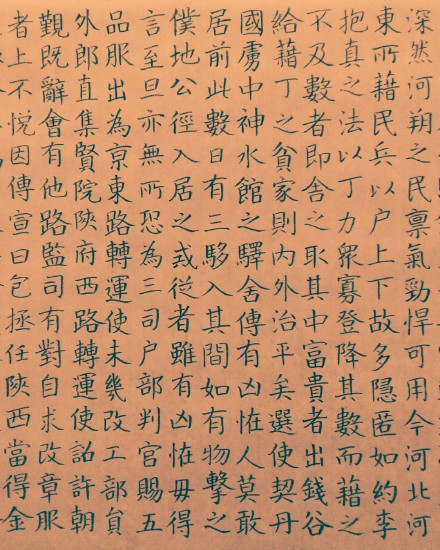 深然河朔之民禀氣勁悍可用今河北河
東所藉民兵以户上下故多隱匿如約李
抱真之法以丁力眾寡登降其數而藉之
不及數者即舍之取其中富貴者出錢谷
給藉丁之貧家則内外治平矣選使契丹
國虜中神水館之驛舍傳有凶恠人莫敢
居前此數日有三入其間如有物擊之
僕地公徑入居之戒從者雖有凶恠毋得
言至旦亦無所恐為三司户部判官賜五
品服出為京東路轉運使未幾改工部貟
外郎直集賢院陝府西路轉運使詔許朝
覲既辭會有他路監司有對自求改章服
者上不悦因傳宣曰包拯任陝西當得金